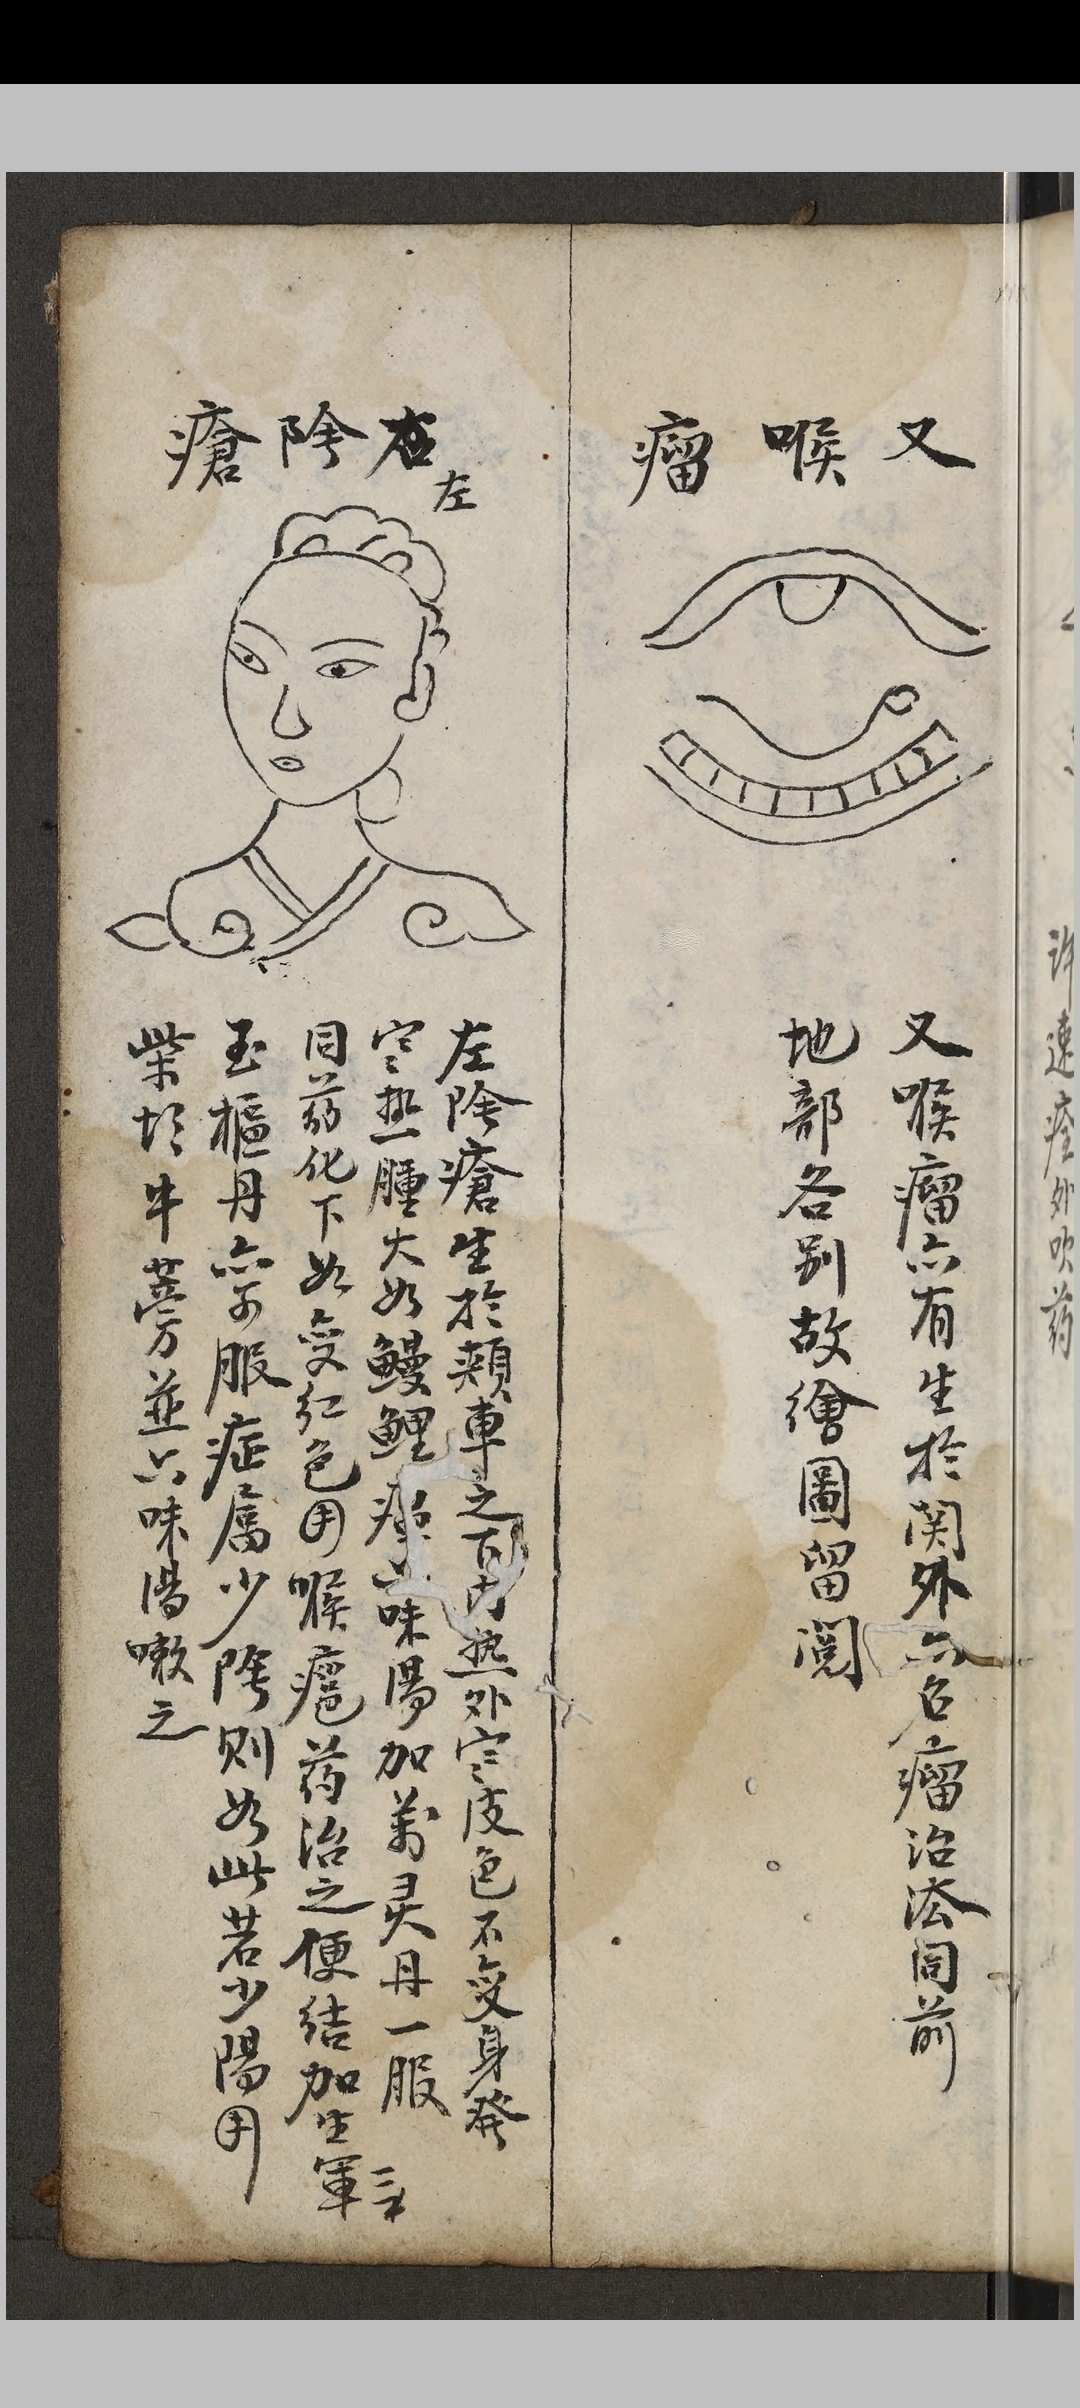 许速痊外吹药
又喉瘤
又喉瘤亦有生於関外亦名瘤治法同前
地部各别故繪圖留閲
右陰瘡
左
左陰瘡生於頬車之内热外寒皮色不变身発
寒热腫大如鰻鯉味湯加萬灵丹一服
同药化下如变红色用喉癰药治之便结加生軍三
玉樞丹亦可服症属少陰则如此若少陽用
柴胡牛蒡並六味湯嗽之